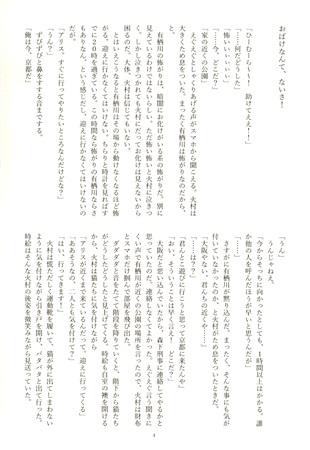 おばけなんて、ないさ！
「ひーむーらぁー！　助けてええ！！」
「……何だどうした」
「怖いぃぃぃぃ」
「……今、どこだ？」
「家の近くの公園」
えぐえぐとしゃくりあげる声がスマホから聞こえる。火村は
大きくため息をついた。まったく有栖川は怖がりなのだから。
有栖川の怖がりは、暗闇にお化けがいる系の怖がりだ。別に
見えているわけではないらしい。ただ怖い怖いと火村に泣きつ
く。しかし泣きつかれても火村にだってお化けは見えないから
困るのだ。大体、火村は信じてもいない。
とはいえこうなると有栖川はその場から動けなくなるほど怖
がる。迎えに行かなくてはいけない。ちらりと時計を見ればす
でに20時を過ぎている。この時間なら怖がりの有栖川ならさ
もありなん、という感じだし、迎えに行かなくてはいけないの
だが。
「アリス、すぐに行ってやりたいところなんだけどな？」
ずびずびと鼻をすする音までする。
「俺は今、京都だ」
「うん」
うんじゃねえ。
「今からそっちに向かったとしても、1時間以上はかかる。誰
か他の人を呼んだほうが早いと思うんだが」
さすがに有栖川が黙り込んだ。まったく、そんな事にも気が
付いていなかったのか、と火村がため息をついたときだ。
「大阪やない。君んちの近くや……」
「……は？」
「君んとこ遊びに行こうと思って京都に来たんや」
「おい、そういうことは早く言え！　どこだ？」
大阪だと思い込んでいたから、森下刑事に連絡してやるかと
思っていたのだ。連絡しなくてよかった。えぐえぐ言う聞きに
くい声で有栖川が近くの公園の場所を言ったので、火村は財布
とスマホだけ掴んで部屋を飛び出た。
ダダダダと音をたてて階段を降りていくと、階下から猫たち
がどうしたどうしたと見上げてくる。時絵も自室の襖を開ける
から、火村は猫たちに気を付けながら
「アリスが近くまで来ているんだって。迎えに行ってくる」
「ああそうなの。気を付けて？」
「はい、行ってきます！」
火村は慌ただしく運動靴を履いて、猫が外に出てしまわない
ように気を付けながら引き戸を開け、パタパタと出て行った。
時絵はそんな火村の後姿を微笑みながら見送っていた。
4